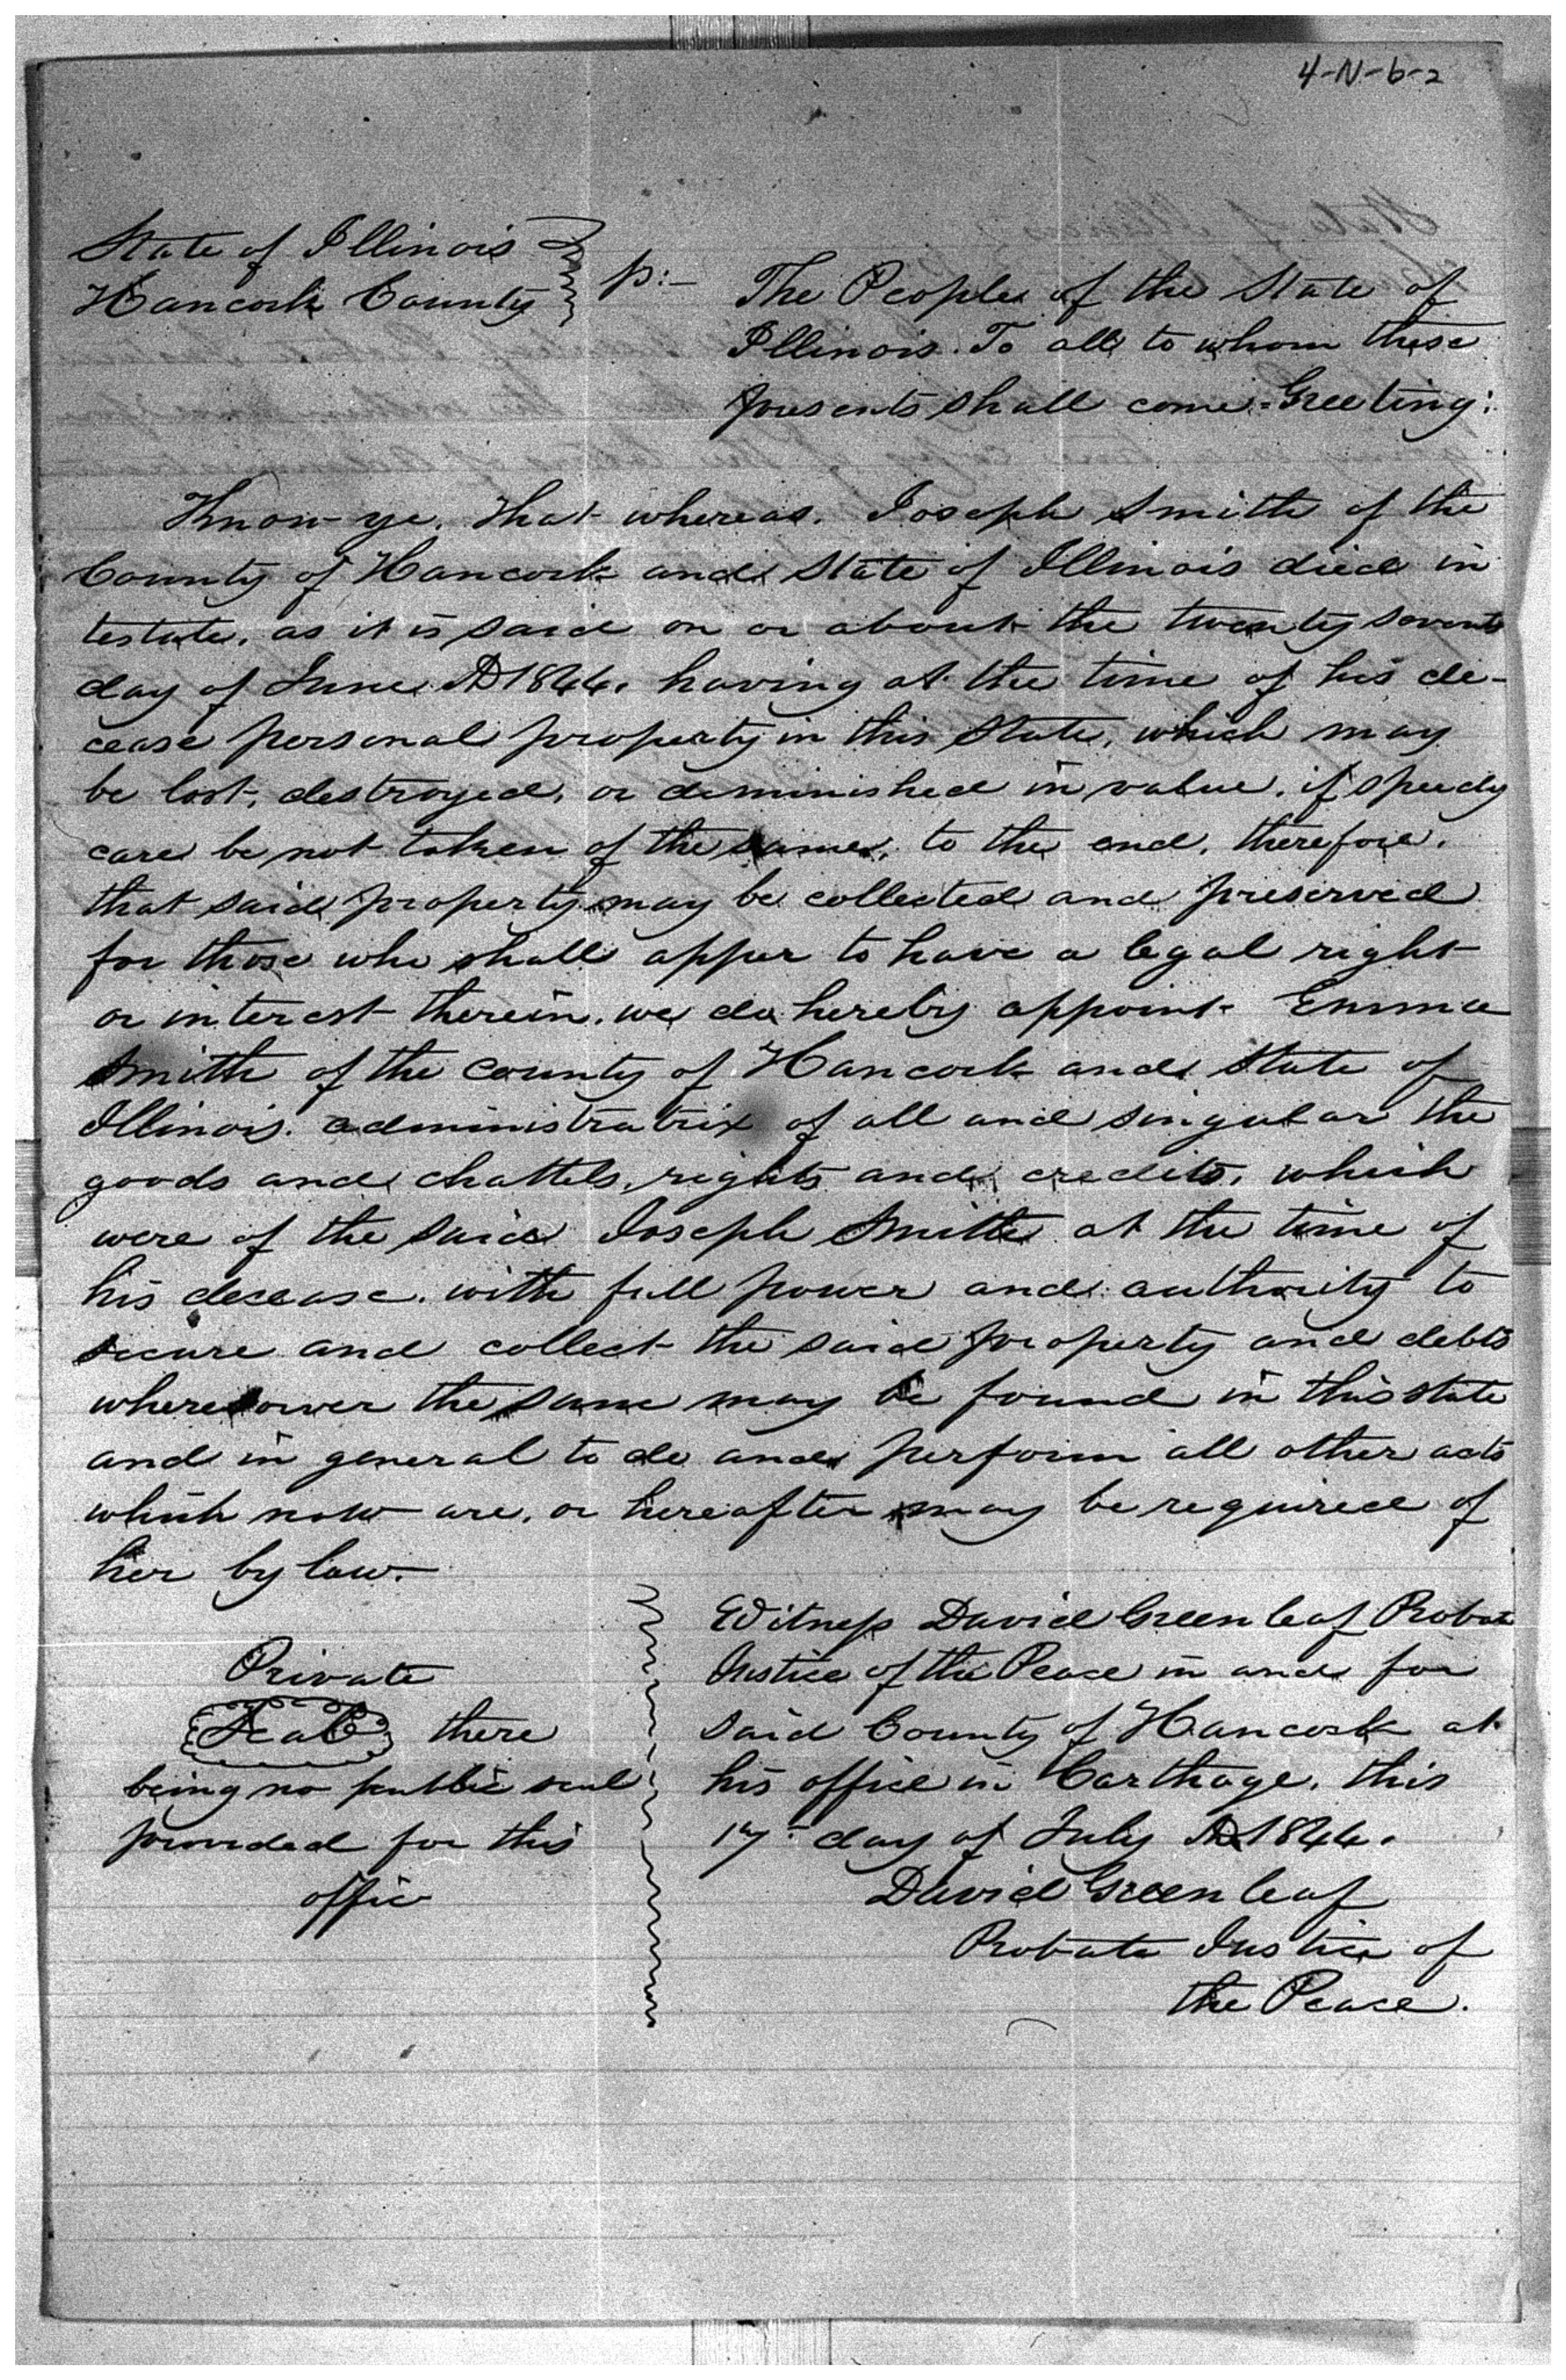 4-N-6-2
State of Illinois
Hancock County
ss:-
The People of the State of
Illinois. To all to whom these
presents shall come - Greeting:
Know ye. That whereas. Joseph Smith of the
County of Hancock and State of Illinois died in
testate, as it is said on or about the twenty seventh
day of June AD 1844. having at the time of his de-
cease personal property in this State, which may
be lost, destroyed, or diminished in value, if speedy
care be not taken of the same, to the end, therefore,
that said property may be collected and preserved
for those who shall apper to have a legal right
or interest therein. we do hereby appoint Emma
Smith of the County of Hancock and State of
Illinois. administratrix of all and singular the
goods and chattels, rights and credits, which
were of the said Joseph Smith at the time of
his decease. with full power and authority to
secure and collect the said property and debts
wheresoever the same may be found in this state
and in general to do and perform all other acts
which now are, or hereafter may be required of
her by law.
Private
Seal there
being no public seal
provided for this
offic
Witness David Greenleaf Probate
Justice of the Peace in and for
said County of Hancock at
his office in Carthage, this
17th day of July AD 1844.
David Greenleaf
Probate Justice of
the Peace.